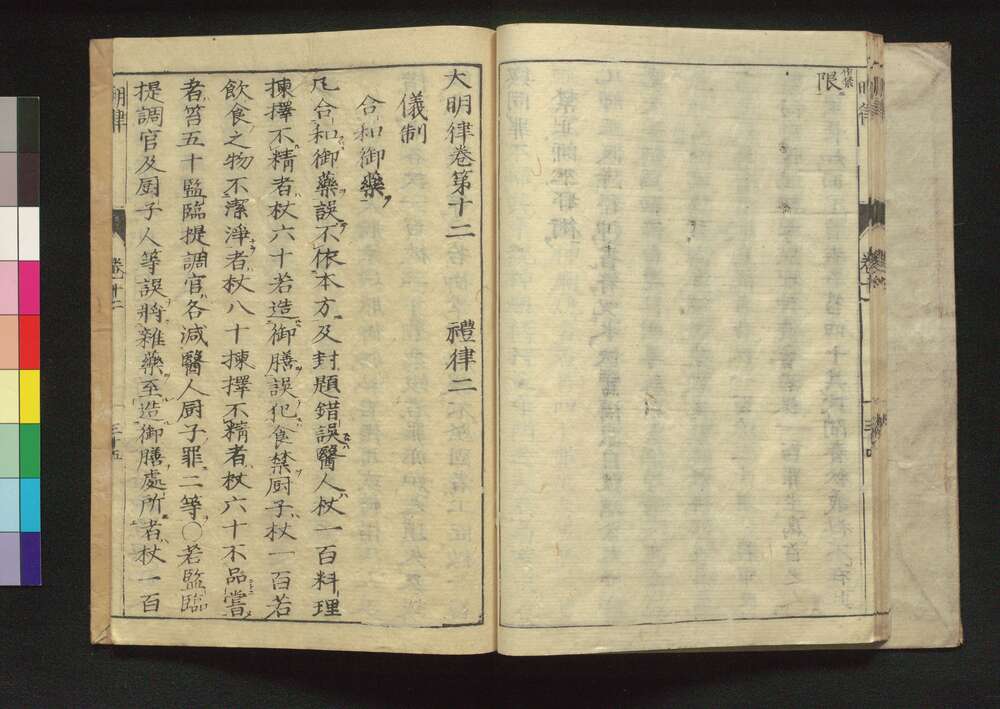 限
大明律卷第十二　禮律二
儀制
合和御藥
凡合和御藥誤不依本方及封題錯誤醫人杖一百料理
揀擇不精者杖六十若造御膳誤犯食禁厨子杖一百若
飲食之物不潔淨者杖八十揀擇不精者杖六十不品嘗
者笞五十監臨提調官各減醫人厨子罪二等〇若監臨
提調官及厨子人等誤將雜藥至造御膳處所者杖一百
明律
卷十二
三十五